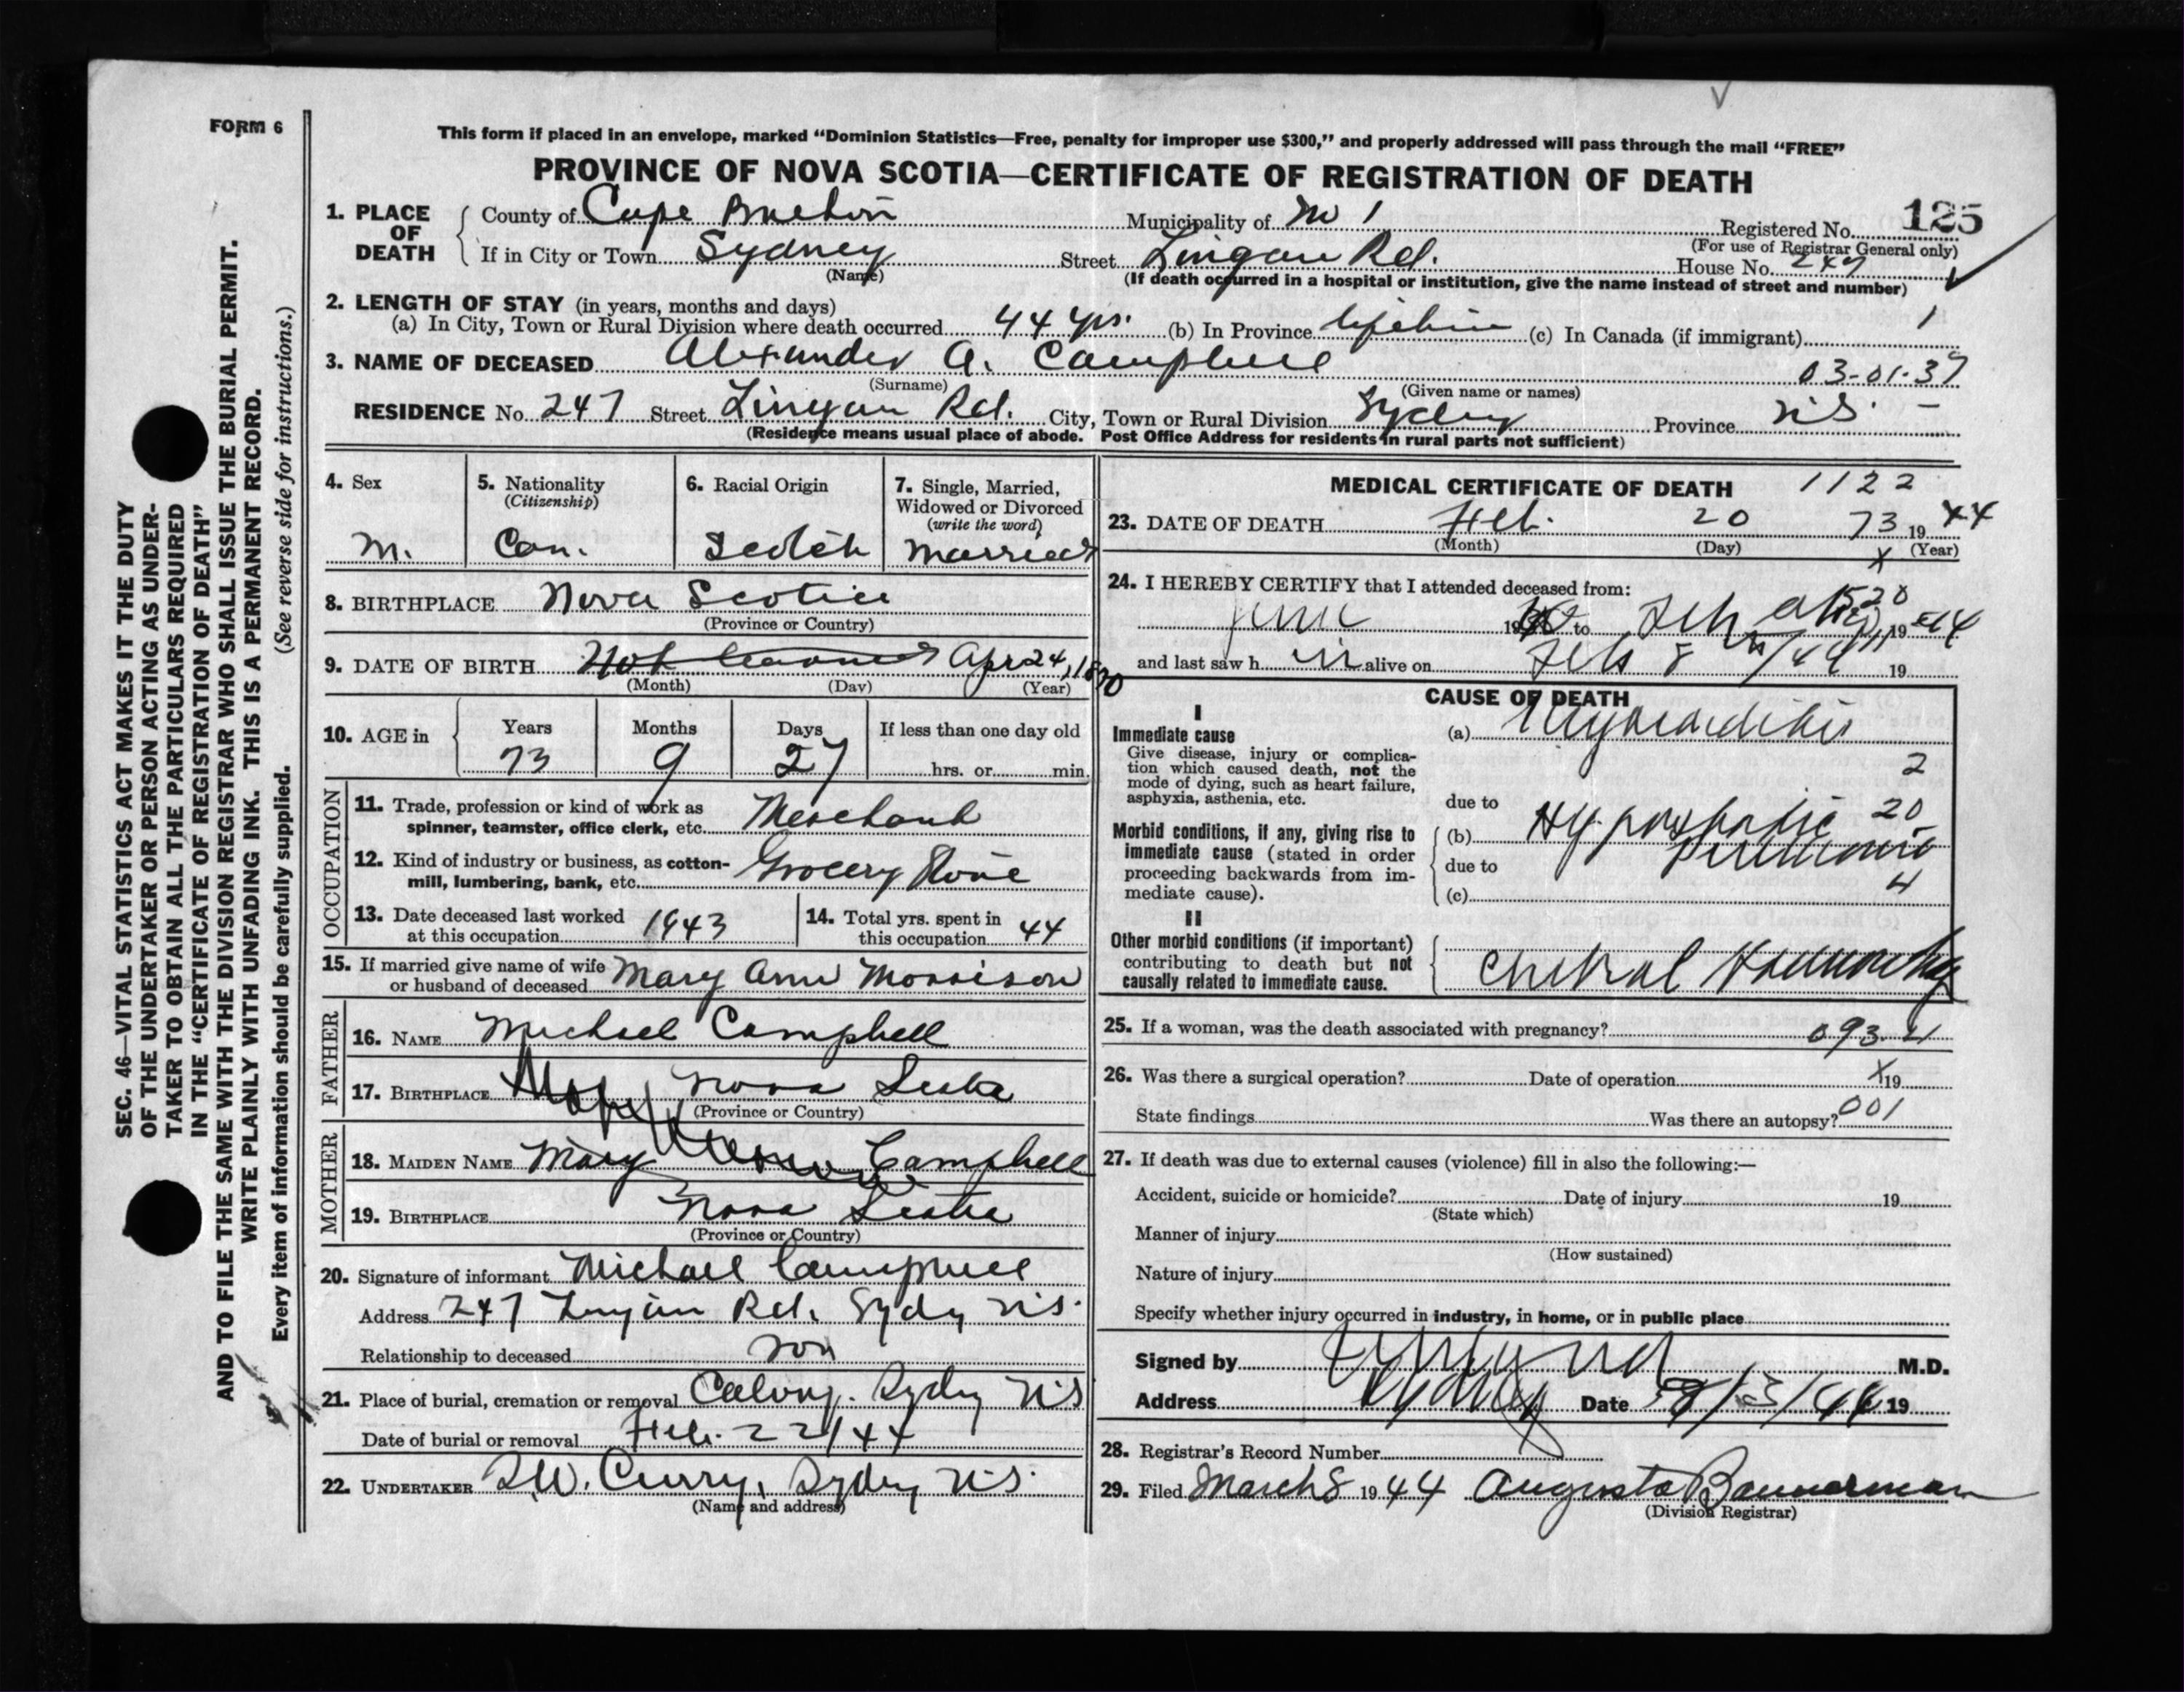 FORM 6
This form if placed in an envelope, marked “Dominion Statistics—Free, penalty for improper use $300,” and properly addressed will pass through the mail “FREE”
PROVINCE OF NOVA SCOTIA—CERTIFICATE OF REGISTRATION OF DEATH
1. PLACE OF DEATH
County of Cape Breton Municipality of Registered No. 125
(For use of Registrar General only)
If in City or Town Sydney Street Lingan Rd. House No. 247
(Name) (If death occurred in a hospital or institution, give the name instead of street and number)
2. LENGTH OF STAY (in years, months and days)
(a) In City, Town or Rural Division where death occurred 44 yrs. (b) In Province lifetime (c) In Canada (if immigrant) 1
3. NAME OF DECEASED Alexander A. Campbell 03-01-37
(Surname) (Given name or names)
RESIDENCE No. 247 Street Lingan Rd. City, Town or Rural Division Sydney Province N.S. —
(Residence means usual place of abode. Post Office Address for residents in rural parts not sufficient)
4. Sex M.
5. Nationality (Citizenship) Can.
6. Racial Origin Scotch
7. Single, Married, Widowed or Divorced (write the word) Married
8. BIRTHPLACE Nova Scotia
(Province or Country)
9. DATE OF BIRTH Not learned Apr 24, 1870
(Month) (Day) (Year)
10. AGE in Years 73 Months 9 Days 27 If less than one day old hrs. or min.
OCCUPATION
11. Trade, profession or kind of work as spinner, teamster, office clerk, etc. Merchant
12. Kind of industry or business, as cotton-mill, lumbering, bank, etc. Grocery Store
13. Date deceased last worked at this occupation 1943
14. Total yrs. spent in this occupation 44
15. If married give name of wife or husband of deceased Mary Ann Morrison
FATHER
16. NAME Michael Campbell
17. BIRTHPLACE Nova Scotia
(Province or Country)
MOTHER
18. MAIDEN NAME Mary Campbell
19. BIRTHPLACE Nova Scotia
(Province or Country)
20. Signature of informant Michael Campbell
Address 247 Lingan Rd. Sydney N.S.
Relationship to deceased son
21. Place of burial, cremation or removal Calvary. Sydney N.S
Date of burial or removal Feb. 22/44
22. UNDERTAKER Curry, Sydney N.S.
(Name and address)
MEDICAL CERTIFICATE OF DEATH 1122
23. DATE OF DEATH Feb. 20 73 19 44
(Month) (Day) (Year)
X
24. I HEREBY CERTIFY that I attended deceased from:
June 19 to Feb 19 44
and last saw h im alive on Feb 8 /44 19
CAUSE OF DEATH
I
Immediate cause
Give disease, injury or complication which caused death, not the mode of dying, such as heart failure, asphyxia, asthenia, etc.
(a) Myocarditis
2
due to
20
Morbid conditions, if any, giving rise to immediate cause (stated in order proceeding backwards from immediate cause).
(b) Hypostatic
Pneumonia
due to
4
(c)
II
Other morbid conditions (if important) contributing to death but not causally related to immediate cause.
Cerebral Haemorrhage
25. If a woman, was the death associated with pregnancy? 093.4
26. Was there a surgical operation? Date of operation X 19
State findings Was there an autopsy? 001
27. If death was due to external causes (violence) fill in also the following:—
Accident, suicide or homicide? Date of injury 19
(State which)
Manner of injury
(How sustained)
Nature of injury
Specify whether injury occurred in industry, in home, or in public place
Signed by M.D.
Address Sydney Date /3/44 19
28. Registrar's Record Number
29. Filed March 8 1944 Augusta Bannerman
(Division Registrar)
SEC. 46—VITAL STATISTICS ACT MAKES IT THE DUTY
OF THE UNDERTAKER OR PERSON ACTING AS UNDER-
TAKER TO OBTAIN ALL THE PARTICULARS REQUIRED
IN THE “CERTIFICATE OF REGISTRATION OF DEATH”
AND TO FILE THE SAME WITH THE DIVISION REGISTRAR WHO SHALL ISSUE THE BURIAL PERMIT.
WRITE PLAINLY WITH UNFADING INK. THIS IS A PERMANENT RECORD.
Every item of information should be carefully supplied. (See reverse side for instructions.)